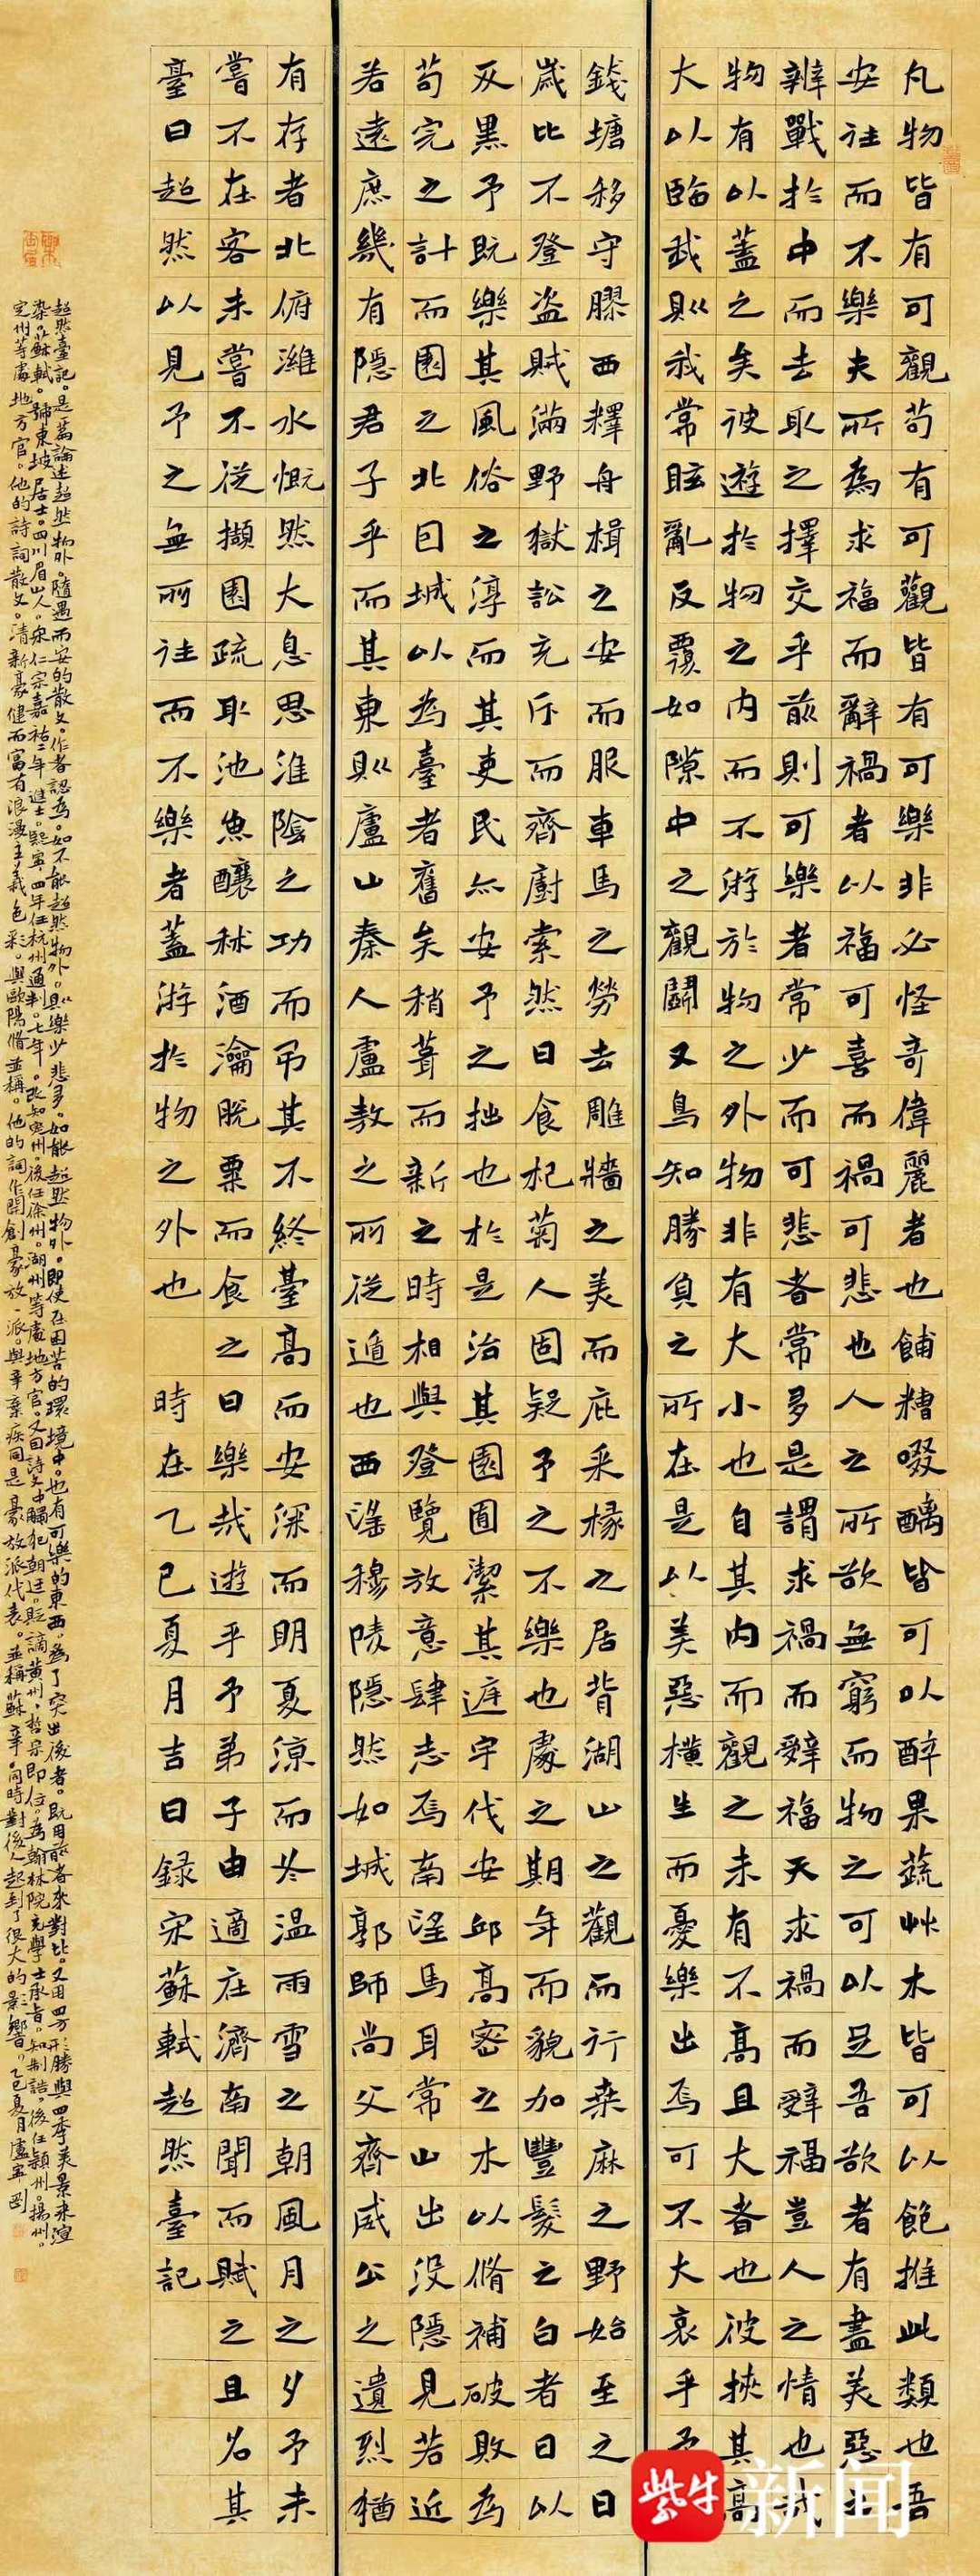 凡物皆有可觀苟有可觀皆有可樂非必怪奇偉麗者也餔糟啜醨皆可以醉果蔬艸木皆可以飽推此類也吾
安往而不樂夫所為求福而辭禍者以福可喜而禍可悲也人之所欲無窮而物之可以足吾欲者有盡美惡之
辨戰於中而去取之擇交乎前則可樂者常少而可悲者常多是謂求禍而辭福夫求禍而辭福豈人之情也哉
物有以蓋之矣彼遊於物之內而不游於物之外物非有大小也自其內而觀之未有不高且大者也彼挾其高
大以臨我則我常眩亂反覆如隙中之觀鬭又烏知勝負之所在是以美惡橫生而憂樂出焉可不大哀乎予
錢塘移守膠西釋舟楫之安而服車馬之勞去雕牆之美而庇采椽之居背湖山之觀而行桑麻之野始至之日
歲比不登盜賊滿野獄訟充斥而齋廚索然日食杞菊人固疑予之不樂也處之期年而貌加豐髮之白者日以
反黑予既樂其風俗之淳而其吏民亦安予之拙也於是治其園圃潔其庭宇伐安邱高密之木以脩補破敗為
苟完之計而園之北因城以為臺者舊矣稍葺而新之時相與登覽放意肆志焉南望馬耳常山出沒隱見若近
若遠庶幾有隱君子乎而其東則盧山秦人盧敖之所從遁也西望穆陵隱然如城郭師尚父齊威公之遺烈猶
有存者北俯濰水慨然大息思淮陰之功而弔其不終臺高而安深而明夏涼而冬溫雨雪之朝風月之夕予未
嘗不在客未嘗不從擷園疏取池魚釀秫酒瀹脫粟而食之曰樂哉遊乎予弟子由適在濟南聞而賦之且名其
臺曰超然以見予之無所往而不樂者蓋游於物之外也 時在乙巳夏月吉日錄宋蘇軾超然臺記
超然臺記。是篇論述超然物外。隨遇而安的散文。作者認為。如不能超然物外。則樂少悲多。如能超然物外。即使在困苦的環境中。也有可樂的東西。為了突出後者。既用前者來對比。又用四方形勝與四季美景來渲
染。蘇軾。號東坡居士。四川眉山人。宋仁宗嘉祐二年進士。熙寧四年任杭州通判。七年。改知密州。後任徐州。湖州等處地方官。又因詩文中觸犯朝廷。貶謫黃州。哲宗即位。為翰林院充學士承旨。知制誥。後任穎州。揚州。
定州等處地方官。他的詩詞散文。清新豪健而富有浪漫主義色彩。與歐陽脩並稱。他的詞作開創豪放一派。與辛棄疾同是豪放派代表。並稱蘇辛。同時對後人起到了很大的影響。乙巳夏月盧軍剛
紫牛新闻